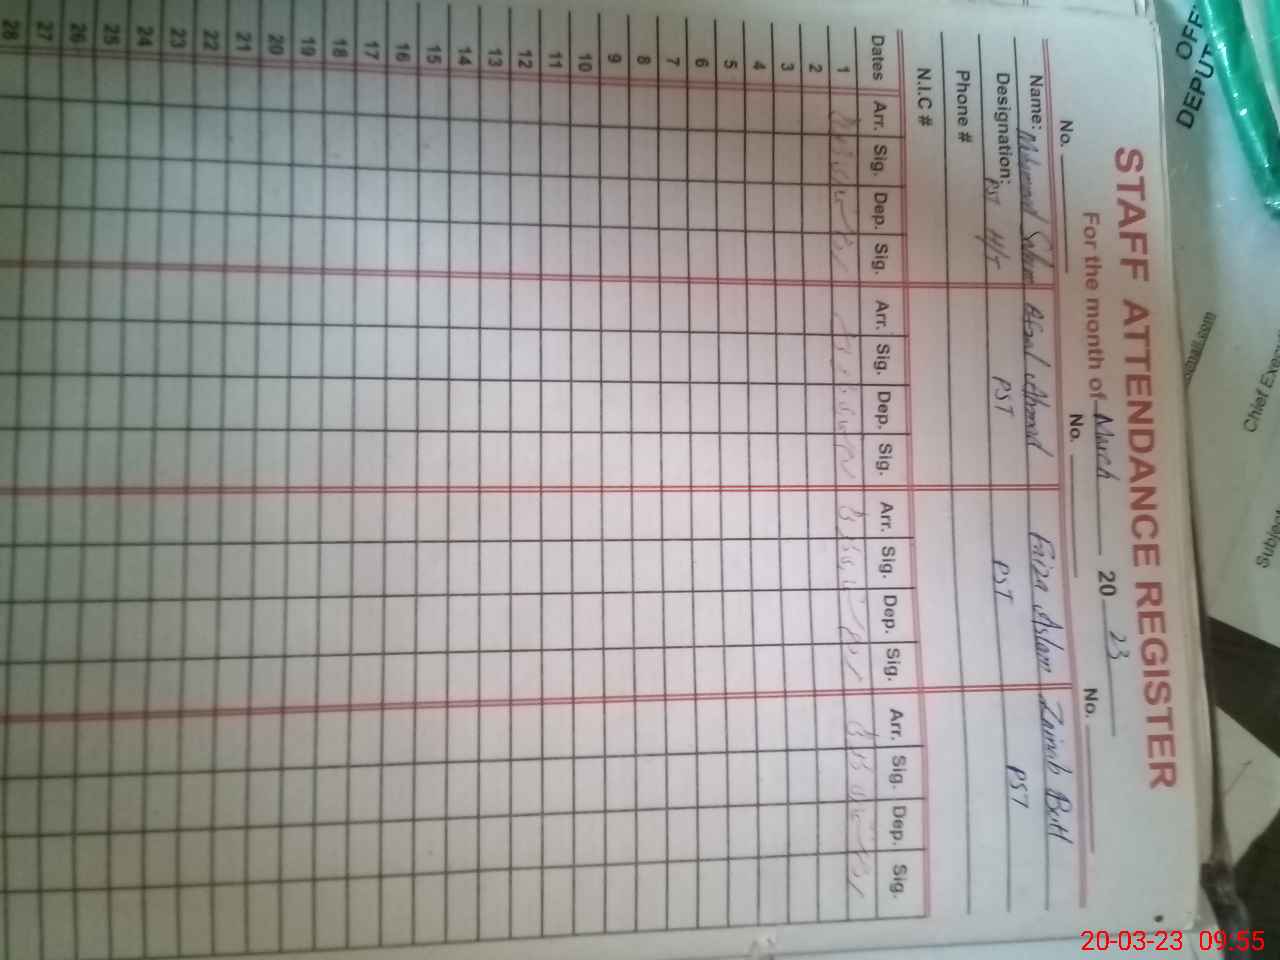 STAFF ATTENDANCE REGISTER
For the month of March 2023
No. No. No.
Name: Muhammad Saleem Afzal Ahmad Faiza Aslam Zainab Butt
Designation: PST H/T PST PST PST
Phone #
N.I.C #
Dates Arr. Sig. Dep. Sig. Arr. Sig. Dep. Sig. Arr. Sig. Dep. Sig. Arr. Sig. Dep. Sig.
1
2
3
4
5
6
7
8
9
10
11
12
13
14
15
16
17
18
19
20
21
22
23
24
25
26
27
28
OFF
DEPUT
Chief Exe
mail.com
Subje
20-03-23 09.55